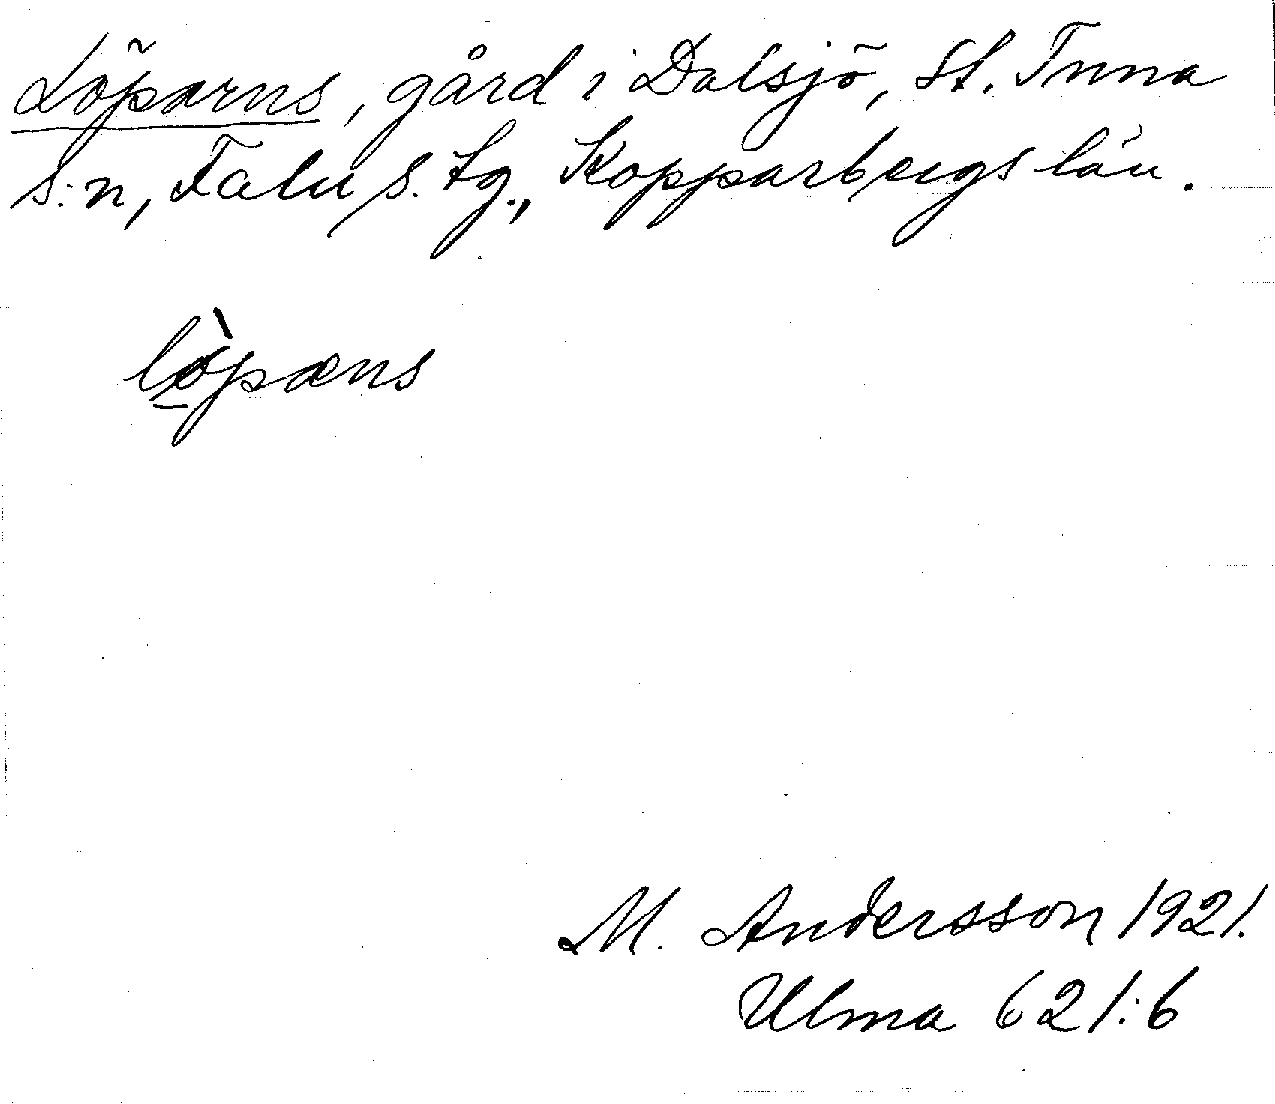 Löparns, gård i Dalsjö, St. Tuna
s:n, Falu s. tg., Kopparbergs län.
lø̀pæns
M. Andersson 1921.
Ulma 621:6